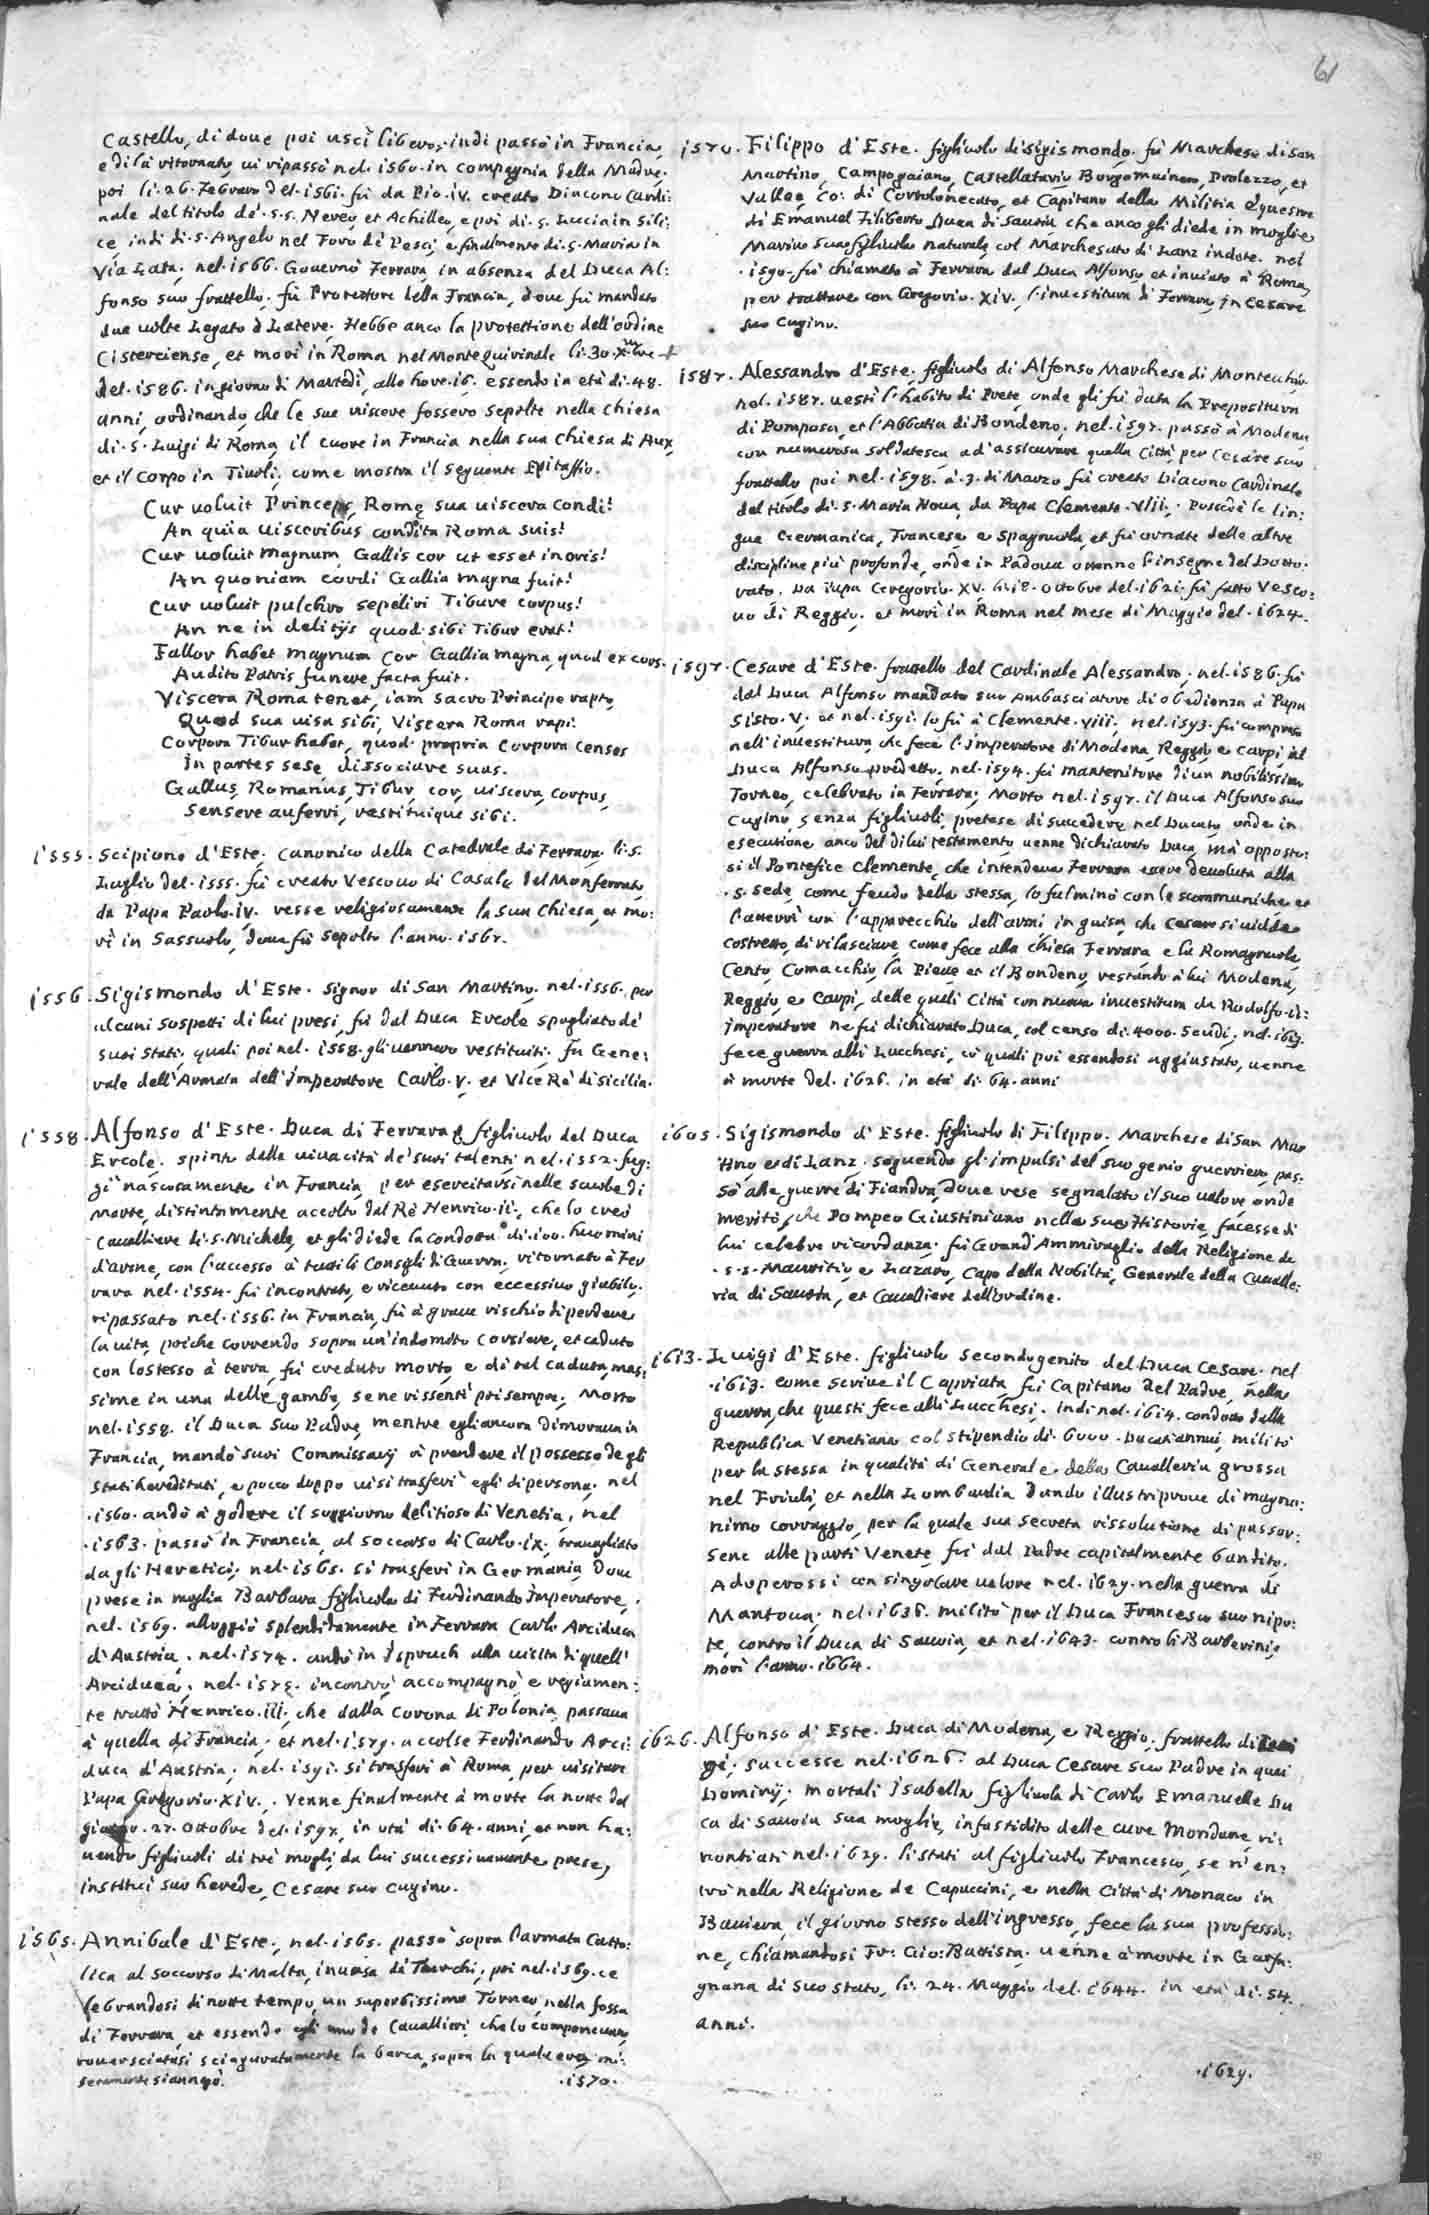 61
Castello, di doue poi uscì libero, indi passò in Francia,
e di là ritornato, ui ripassò nel. 1560. in compagnia della Madre.
poi li. 26. Febraro del. 1561. fù da Pio. iv. creato Diacono Cardi:
nale del titolo de. s.s. Nereo, et Achilleo, e poi di. s. Lucia in Sili:
ce indi di. s. Angelo nel Foro de Pesci, e finalmente di. s. Maria in
Via Lata. nel. 1566. Gouernò Ferrara, in absenza del Duca Al:
fonso suo frattello. fù Protettore della Francia, doue fù mandato
due uolte Legato à Latere. Hebbe anco la protettione dell'ordine
Cisterciense, et morì in Roma nel Monte Quirinale li. 30. Xmbre +
del. 1586. in giorno di Martedì, alle hore. 16. essendo in età di. 48.
anni, ordinando, che le sue uiscere fossero sepolte nella chiesa
di. s. Luigi di Roma, il cuore in Francia nella sua Chiesa di Aux,
et il Corpo in Tiuoli, come mostra il seguente Epitaffio.
Cur uoluit Princeps Romę sua uiscera condi?
An quia uisceribus condita Roma suis?
Cur uoluit magnum Gallis cor ut esset in oris?
An quoniam cordi Gallia magna fuit?
Cur uoluit pulchro sepeliri Tibure corpus?
An ne in delitijs quod sibi Tibur erat?
Fallor habet magnum Cor Gallia magna, quod excors.
Audito Patris funere facta fuit.
Viscera Roma tenet, iam sacro Principe rapto,
Quod sua uisa sibi, Viscera Roma rapi.
Corpora Tibur habet, quod propria Corpora censes
in partes sese dissociare suas.
Gallus, Romanus, Tibur, cor, uiscera, corpus,
Sensere auferri, restituique sibi.
1555. Scipione d'Este. Canonico della Catedrale di Ferrara. li. 5.
Luglio del. 1555. fù creato Vescouo di Casale del Monferrato,
da Papa Paolo. iv. resse religiosamente la sua Chiesa, et mo:
rì in Sassuolo, doue fù sepolto l'anno. 1567.
1556. Sigismondo d'Este. Signor di San Martino. nel. 1556. per
alcuni sospetti di lui presi, fù dal Duca Ercole spogliato de
suoi Stati. quali poi nel. 1558. gli uennero restituiti. fù Gene:
rale dell'Armata dell'Imperatore Carlo. V. et Vice Rè di Sicilia.
1558. Alfonso d'Este. Duca di Ferrara figliuolo del Duca
Ercole. spinto dalla uiuacità de suoi talenti nel. 1552. fug:
gì nascosamente in Francia, per esercitarsi nelle scuole di
Marte, distintamente accolto dal Rè Henrico. ii., che lo creò
Cauallliere di. s. Michele, et gli diede la condotta di. 100. huomini
d'arme, con l'accesso à tutti li Consigli di Guerra. ritornato à Fer
rara nel. 1554. fù incontrato, e riceuuto con eccessiuo giubilo.
ripassato nel. 1556. in Francia, fù à graue rischio di perdere
la uita, poiche correndo sopra un'indomito Corsiere, et caduto
con lo stesso à terra, fù creduto morto, e di tal caduta, mas:
sime in una delle gambe, se ne rissentì poi sempre. Morto
nel. 1558. il Duca suo Padre, mentre egli ancora dimoraua in
Francia, mandò suoi Commissarij à prendere il possesso degli
Stati hereditati, e pocco doppo ui si trasferì egli di persona. nel
.1560. andò à godere il soggiorno delitioso di Venetia, nel
.1563. passò in Francia, al soccorso di Carlo. ix. trauagliato
dagli Heretici, nel. 1565. si trasferì in Germania, doue
prese in moglie Barbara figliuola di Ferdinando Imperatore.
nel. 1569. alloggiò splendidamente in Ferrara Carlo Arciduca
d'Austria. nel. 1574. andò in Ispruch alla uisita di quell'
Arciduca. nel. 1575. incontrò, accompagnò e regiamen:
te trattò Henrico. iii., che dalla Corona di Polonia, passaua
à quella di Francia. et nel. 1579. accolse Ferdinando Arci:
duca d'Austria. nel. 1591. si trasferì à Roma, per uisitare
Papa Gregorio. XIV. Venne finalmente à morte la notte del
giorno. 27. Ottobre del. 1597. in età di. 64. anni, et non ha:
uendo figliuoli di trè mogli, da lui successiuamente prese,
instituì suo herede, Cesare suo Cugino.
1565. Annibale d'Este, nel. 1565. passò sopra l'armata Catto:
lica al soccorso di Malta, inuasa da Turchi. poi nel. 1569. ce
lebrandosi di notte tempo, un superbissimo Torneo, nella fossa
di Ferrara, et essendo egli uno de Cauallieri, che lo componeuano,
rouersciatasi sciaguratamente la barca, sopra la quale era, mi:
seramente si annegò. .1570.
1570. Filippo d'Este. figliuolo di Sigismondo. fù Marchese di San
Martino, Campogaiano, Castellatario, Borgomainero, Prolezzo, et
Vallee, Co: di Cortolonecato, et Capitano della Militia Equestre
di Emanuel Filiberto Duca di Sauoia che anco gli diede in moglie,
Maria sua figliuola naturale, col Marchesato di Lanz in dote. nel
.1590. fù chiamato à Ferrara dal Duca Alfonso, et inuiato à Roma,
per trattare con Gregorio. XIV. l'inuestitura di Ferrara, in Cesare
suo Cugino.
1587. Alessandro d'Este. figliuolo di Alfonso Marchese di Montecchio.
nel. 1587. uestì l'habito di Prete, onde gli fù data la Prepositura
di Pomposa, et l'Abbatia di Bondeno. nel. 1597. passò à Modena
con numerosa soldatesca, ad assicurare quella Città, per Cesare suo
frattello poi nel. 1598. à. 3. di Marzo fù creato Diacono Cardinale
del titolo di. s. Maria Noua, da Papa Clemente. VIII. Possedè le lin:
gue Germanica, Francese, e Spagnuola, et fù ornato delle altre
discipline più profonde, onde in Padoua ottenne l'insegne del Dotto:
rato. Da Papa Gregorio. XV. li. 18. ottobre del. 1621. fù fatto Vesco:
uo di Reggio. et morì in Roma nel mese di Maggio del. 1624.
1597. Cesare d'Este. frattello del Cardinale Alessandro. nel. 1586. fù
dal Duca Alfonso mandato suo Ambasciatore di obedienza à Papa
Sisto. V. et nel. 1591. lo fù à Clemente. VIII. nel. 1593. fù compreso
nell'inuestitura, che fece l'Imperatore di Modena, Reggio, e Carpi, al
Duca Alfonso predetto. nel. 1594. fù mantenitore di un nobilissimo
Torneo, celebrato in Ferrara. Morto nel. 1597. il Duca Alfonso suo
Cugino, senza figliuoli, pretese di succedere nel Ducato, onde in
esecutione anco del di lui testamento, uenne dichiarato Duca, mà opposto:
si il Pontefice Clemente, che intendeua Ferrara essere deuoluta alla
.s. sede, come feudo della stessa, lo fulminò con le scommuniche, et
l'atterrì con l'apparecchio dell'armi, in guisa, che Cesare si uidde
costretto, di rilasciare, come fece alla chiesa Ferrara, e la Romagnuola
Cento, Comacchio, la Pieue et il Bondeno, restando à lui Modena,
Reggio, e Carpi, delle quali Città con nuoua inuestitura da Rodolfo. ii:
Imperatore ne fù dichiarato Duca, col censo di. 4000. Scudi. nel. 1613.
fece guerra alli Lucchesi, co' quali poi essendosi aggiustato, uenne
à morte del. 1628. in età di. 64. anni
1605. Sigismondo d'Este. figliuolo di Filippo. Marchese di San Mar
tino e di Lanz. seguendo gl'impulsi del suo genio guerriero, pas:
sò alle guerre di Fiandra, doue rese segnalato il suo ualore, onde
meritò, che Pompeo Giustiniano nelle sue Historie, facesse di
lui celebre ricordanza. fù Grand'Ammiraglio della Religione de
.s.s. Mauritio, e Lazaro, Capo della Nobiltà, Generale della Caualle:
ria di Sauoia, et Caualliere dell'ordine.
1613. Luigi d'Este. figliuolo secondogenito del Duca Cesare. nel
.1613. come scriue il Capriata, fù Capitano del Padre, nella
guerra, che questi fece alli Lucchesi. Indi nel. 1614. condotto dalla
Republica Venetiana col stipendio di. 6000. Ducati annui, militò
per la stessa in qualità di Generale della Caualleria grossa
nel Friuli, et nella Lombardia dando illustri proue di magna:
nimo corraggio, per la quale sua secreta rissolutione di passar:
sene alle parti Venete, fù dal Padre capitalmente bandito.
Adoperossi con singolare ualore nel. 1629. nella guerra di
Mantoua. nel. 1636. militò per il Duca Francesco suo nipo:
te, contro il Duca di Sauoia, et nel. 1643. contro li Barberini,
morì l'anno. 1664.
1626. Alfonso d'Este. Duca di Modena, e Reggio, frattello di Lui
gi. successe nel. 1626. al Duca Cesare suo Padre in quei
Dominij. mortali Isabella figliuola di Carlo Emanuelle Du
ca di Sauoia sua moglie, infastidito delle cure Mondane, ri:
nontiati nel. 1629. li stati al figliuolo Francesco, se n'en:
trò nella Religione de Capuccini, e nella Città di Monaco in
Bauiera, il giorno stesso dell'ingresso, fece la sua professio:
ne, chiamandosi Fr: Gio: Battista. uenne à morte in Garfa:
gnana di suo stato, li. 24. Maggio del. 1644. in età di. 54.
anni.
.1629.